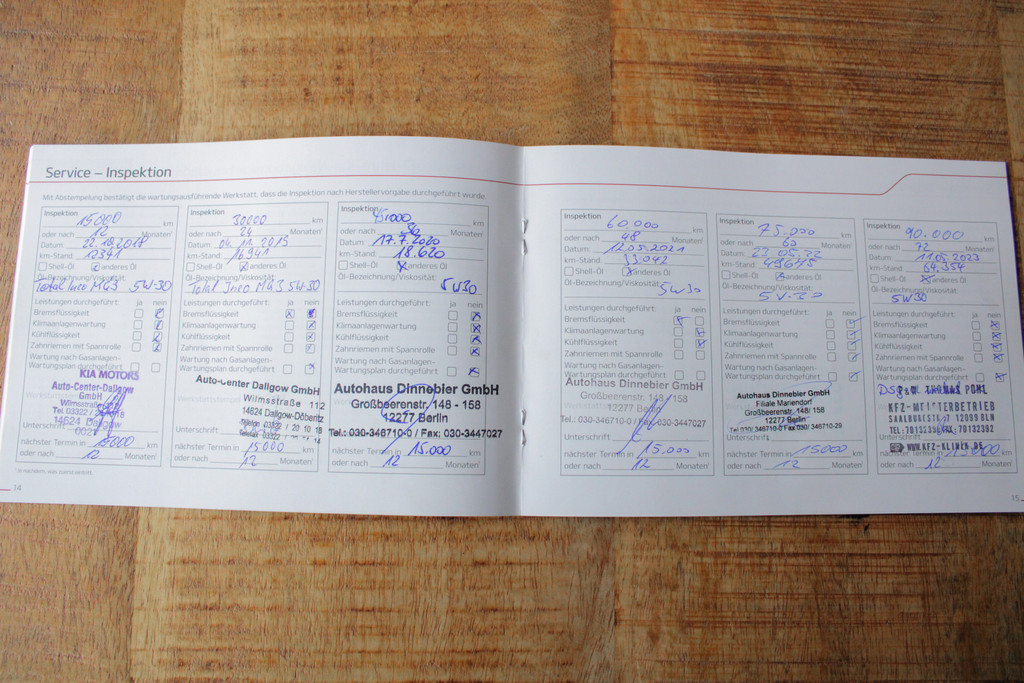 Service – Inspektion
Mit Abstempelung bestätigt die wartungsausführende Werkstatt, dass die Inspektion nach Herstellervorgabe durchgeführt wurde.
Inspektion
15000 km
oder nach 12 Monaten¹
Datum: 22.10.2018
km-Stand: 12341
Shell-Öl anderes Öl
Öl-Bezeichnung/Viskosität:
Total Ineo MC3 5W-30
Leistungen durchgeführt: ja nein
Bremsflüssigkeit
Klimaanlagenwartung
Kühlflüssigkeit
Zahnriemen mit Spannrolle
Wartung nach Gasanlagen-
Wartungsplan durchgeführt
KIA MOTORS
Auto-Center-Dallgow
GmbH
Wilmsstraße
Tel. 03322 /
14624 Dallgow
Unterschrift
nächster Termin in 15000 km
oder nach 12 Monaten¹
¹ je nachdem, was zuerst eintritt
14
Inspektion
30000 km
oder nach 24 Monaten¹
Datum: 04.11.2019
km-Stand: 16941
Shell-Öl anderes Öl
Öl-Bezeichnung/Viskosität:
Total Ineo MC3 5W-30
Leistungen durchgeführt: ja nein
Bremsflüssigkeit
Klimaanlagenwartung
Kühlflüssigkeit
Zahnriemen mit Spannrolle
Wartung nach Gasanlagen-
Wartungsplan durchgeführt
Auto-Center Dallgow GmbH
Wilmsstraße 112
14624 Dallgow-Döberitz
Unterschrift
nächster Termin in 15000 km
oder nach 12 Monaten¹
Inspektion
45000 km
oder nach 36 Monaten¹
Datum: 17.7.2020
km-Stand: 18.620
Shell-Öl anderes Öl
Öl-Bezeichnung/Viskosität:
5W30
Leistungen durchgeführt: ja nein
Bremsflüssigkeit
Klimaanlagenwartung
Kühlflüssigkeit
Zahnriemen mit Spannrolle
Wartung nach Gasanlagen-
Wartungsplan durchgeführt
Autohaus Dinnebier GmbH
Großbeerenstr. 148 - 158
12277 Berlin
Tel.: 030-346710-0 / Fax: 030-3447027
nächster Termin in 15.000 km
oder nach 12 Monaten¹
Inspektion
60.000 km
oder nach 48 Monaten¹
Datum: 12.05.2021
km-Stand: 33.042
Shell-Öl anderes Öl
Öl-Bezeichnung/Viskosität:
5W30
Leistungen durchgeführt: ja nein
Bremsflüssigkeit
Klimaanlagenwartung
Kühlflüssigkeit
Zahnriemen mit Spannrolle
Wartung nach Gasanlagen-
Wartungsplan durchgeführt
Autohaus Dinnebier GmbH
Großbeerenstr. 148 - 158
12277 Berlin
Tel.: 030-346710-0 / Fax: 030-3447027
Unterschrift
nächster Termin in 15.000 km
oder nach 12 Monaten¹
Inspektion
75.000 km
oder nach 60 Monaten¹
Datum: 23.05.22
km-Stand: 49675
Shell-Öl anderes Öl
Öl-Bezeichnung/Viskosität:
5W-30
Leistungen durchgeführt: ja nein
Bremsflüssigkeit
Klimaanlagenwartung
Kühlflüssigkeit
Zahnriemen mit Spannrolle
Wartung nach Gasanlagen-
Wartungsplan durchgeführt
Autohaus Dinnebier GmbH
Filiale Mariendorf
Großbeerenstr. 148/ 158
12277 Berlin
Tel. 030/ 346710-0 Fax 030/ 346710-29
Unterschrift
nächster Termin in 15000 km
oder nach 12 Monaten¹
Inspektion
90.000 km
oder nach 72 Monaten¹
Datum: 11.05.2023
km-Stand: 64.354
Shell-Öl anderes Öl
Öl-Bezeichnung/Viskosität:
5W30
Leistungen durchgeführt: ja nein
Bremsflüssigkeit
Klimaanlagenwartung
Kühlflüssigkeit
Zahnriemen mit Spannrolle
Wartung nach Gasanlagen-
Wartungsplan durchgeführt
THOMAS POHL
KFZ-MEISTERBETRIEB
12099 BLN
TEL: 70132391 FAX: 70132392
WWW.KFZ-KLINIK.DE
nächster Termin in 15000 km
oder nach 12 Monaten¹
15